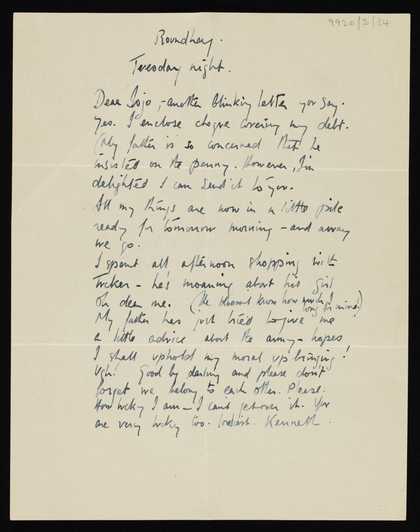 9920/2/34
Roundhay.
Tuesday night.
Dear Jojo, - another blinking letter you say.
Yes. I enclose cheque covering my debt.
(My father is so concerned that he
insisted on the penny. However, I'm
delighted I can send it to you.
All my things are now in a little pile
ready for tomorrow morning - and away
we go.
I spent all afternoon shopping with
Tucker - he's moaning about his girl
oh dear me. (He doesn't know how much I
long for mine)
My father has just tried to give me
a little advice about the army - hopes
I shall uphold my moral upbringing!
Ugh! Good by darling and please don't
forget we belong to each other. Please.
How lucky I am - I can't get over it. You
are very lucky too. Kenneth.